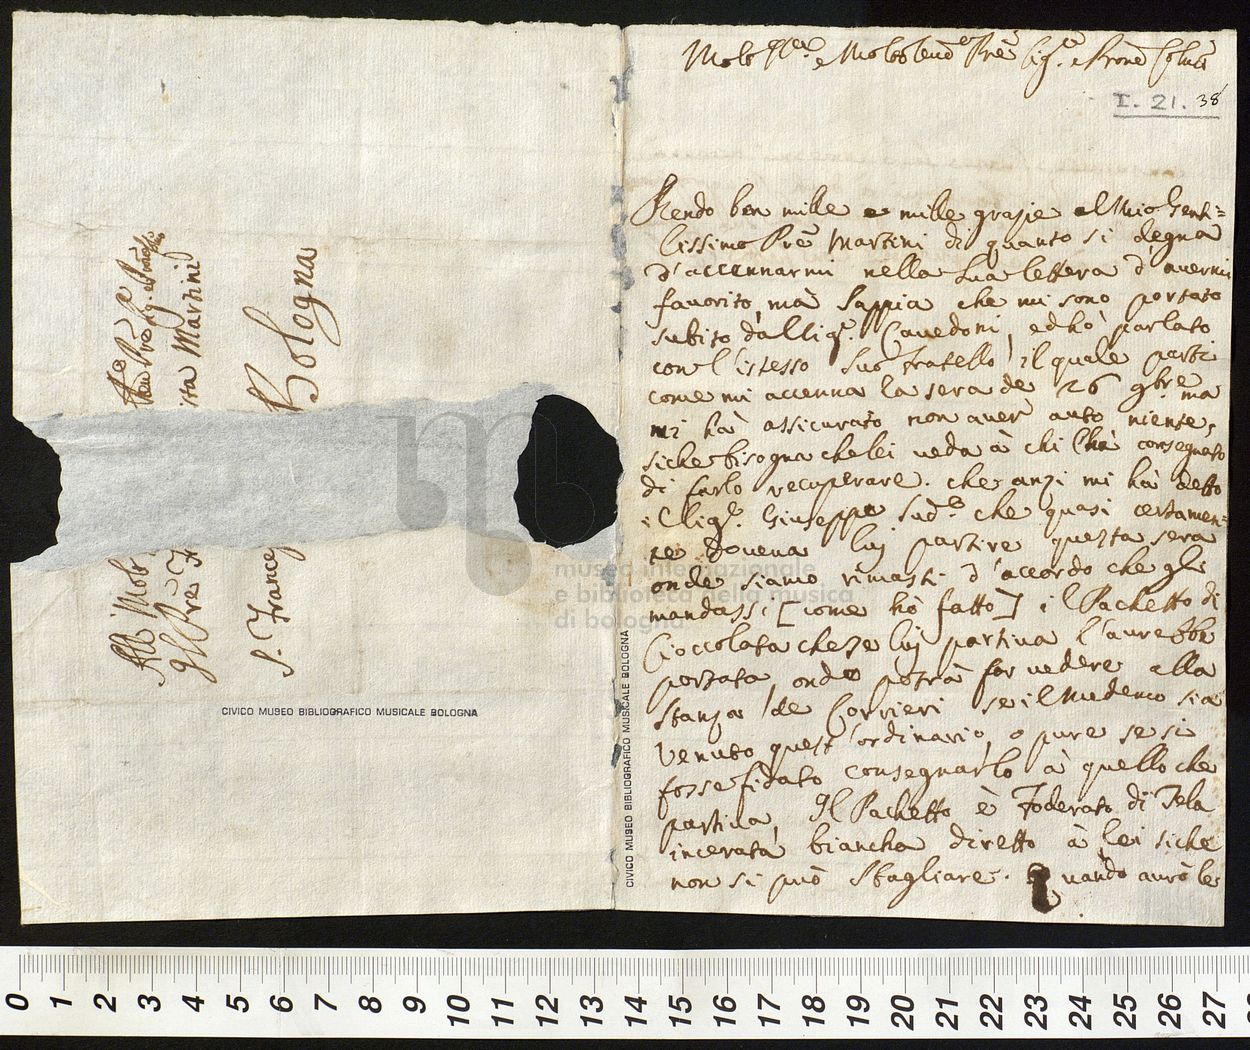 All' Molto
Gl Pre
ista Martini
S. Francesco
Bologna
CIVICO MUSEO BIBLIOGRAFICO MUSICALE BOLOGNA
CIVICO MUSEO BIBLIOGRAFICO MUSICALE BOLOGNA
Molto e Pre Sig.e e Prone
I. 21. 38
Rendo ben mille e mille grazie al Mio Genti=
lissimo Pre Martini di quanto si degna
d'accennarmi nella Sua lettera d'avermi
favorito, mà Sappia che mi sono portato
subito dalli Sig.ri Cavedoni, ed hò parlato
con l'istesso Suo Fratello, il quale partì
come mi accenna la sera de 26 9bre ma
mi hà assicurato non aver auto niente,
siche bisogna che lei veda à chi l'hà consegnato
di farlo recuperare. che anzi mi hà detto
il Sig.r Giuseppe Sud.o che quasi certamen=
te doveva lui partire questa sera
onde siamo rimasti d'accordo che gli
mandassi [come hò fatto] il Pachetto di
Cioccolata che se lui partiva l'aurebbe
portata, onde potrà far vedere alla
Stanza de Corrieri se il Medemo sia
venuto quest'ordinario, o pure se si
fosse fidato consegnarlo à quello che
partiva, Il Pachetto è Foderato di Tela
incerata bianca diretto à lei siche
non si può Sbagliare. Quando aurò le
museo internazionale
e biblioteca della musica
di bologna
0 1 2 3 4 5 6 7 8 9 10 11 12 13 14 15 16 17 18 19 20 21 22 23 24 25 26 27